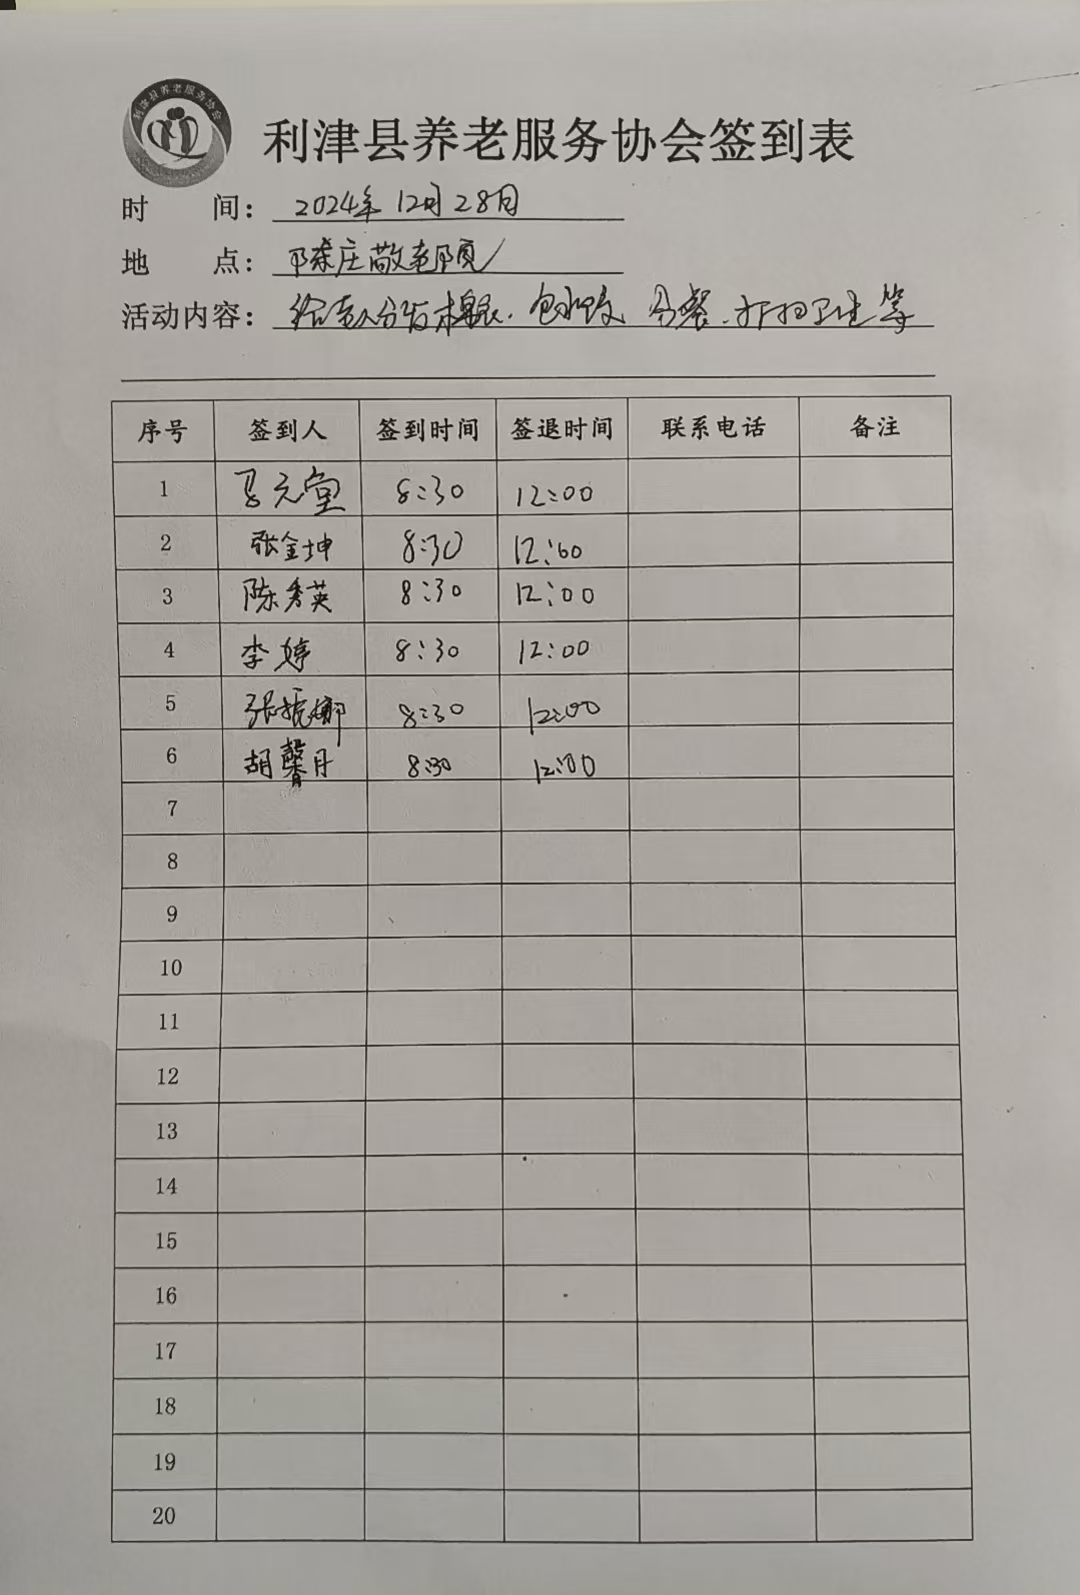 利津县养老服务协会
利津县养老服务协会签到表
时 间： 2024年12月28日
地 点： 陈庄敬老院
活动内容： 给老人分发棉衣、包水饺、分餐、打扫卫生等
序号 签到人 签到时间 签退时间 联系电话 备注
1 元堂 8:30 12:00
2 张金坤 8:30 12:00
3 陈秀英 8:30 12:00
4 李婷 8:30 12:00
5 张振娜 8:30 12:00
6 胡馨月 8:30 12:00
7
8
9
10
11
12
13
14
15
16
17
18
19
20